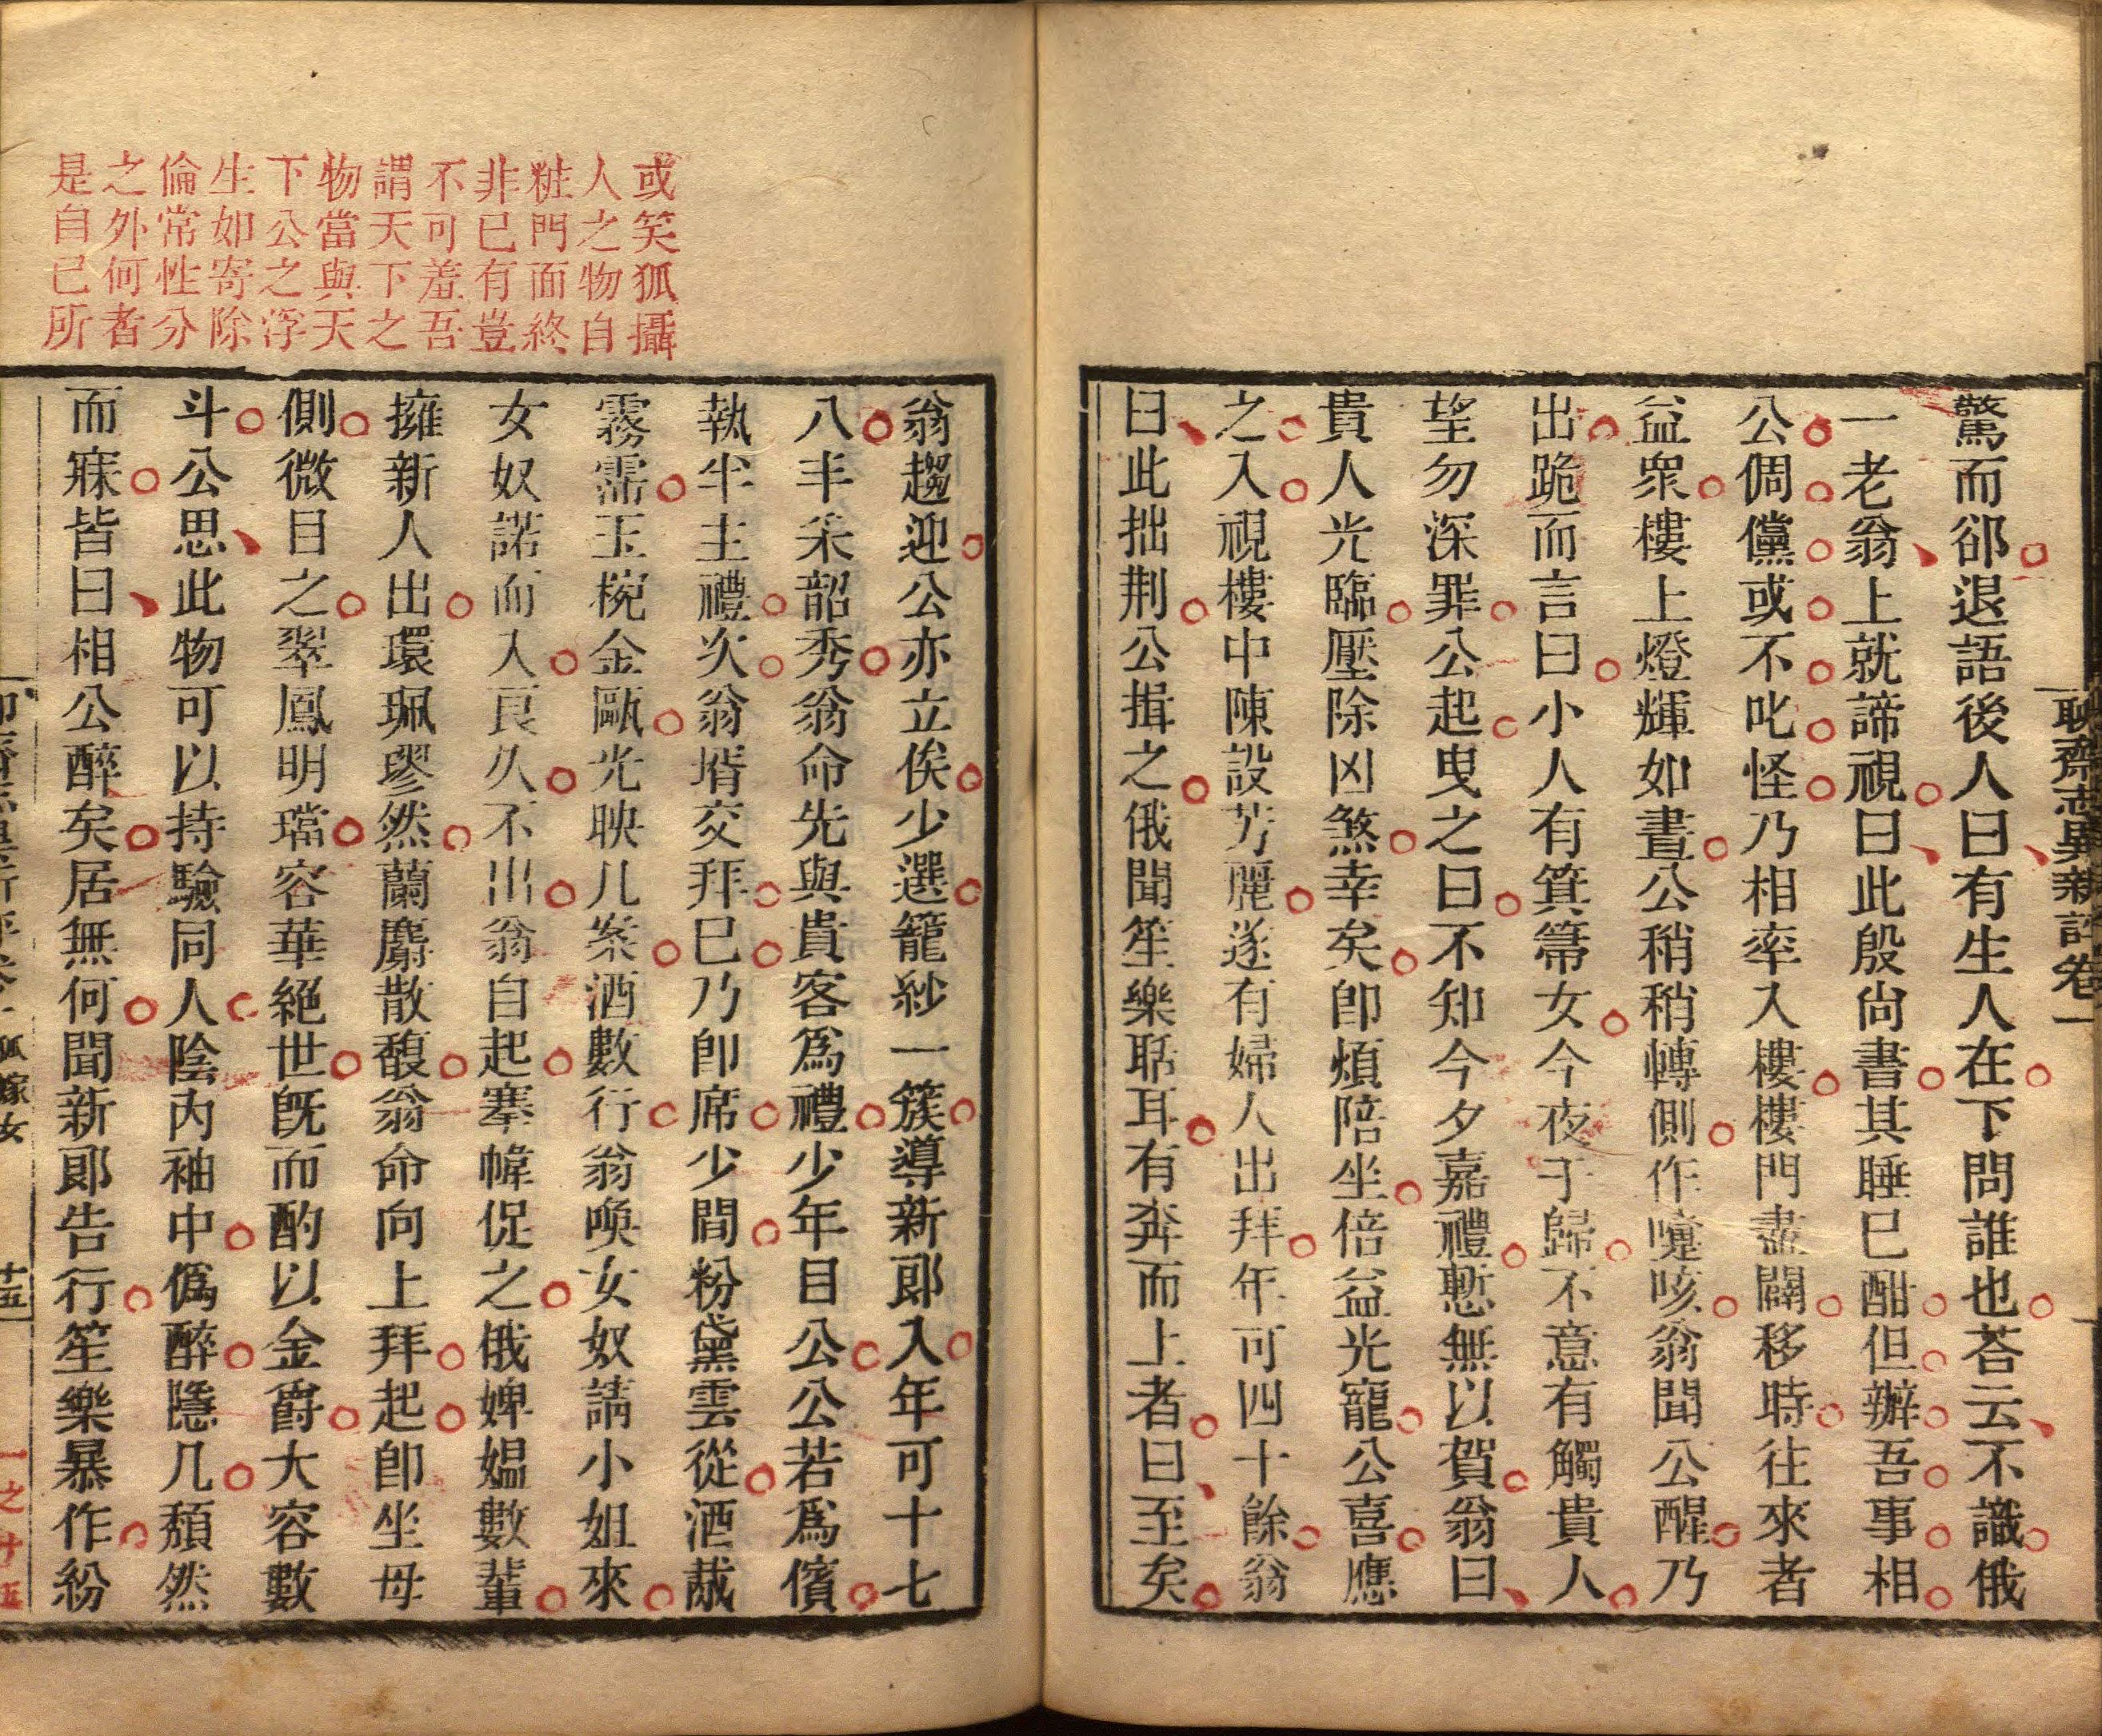 聊齋志異新評卷一
驚而郤退語後人曰有生人在下問誰也荅云不識俄
一老翁上就諦視曰此殷尙書其睡巳酣但辦吾事相
公倜儻或不叱怪乃相率入樓樓門盡闢移時往來者
益衆樓上燈輝如晝公稍稍轉側作嚏咳翁聞公醒乃
出跪而言曰小人有箕箒女今夜于歸不意有觸貴人
望勿深罪公起曳之曰不知今夕嘉禮慙無以賀翁曰
貴人光臨壓除凶煞幸矣卽煩陪坐倍益光寵公喜應
之入視樓中陳設芳麗遂有婦人出拜年可四十餘翁
曰此拙荆公揖之俄聞笙樂聒耳有奔而上者曰至矣
或笑狐攝
人之物自
粧門面終
非已有豈
不可羞吾
謂天下之
物當與天
下公之浮
生如寄除
倫常性分
之外何者
是自已所
翁趨迎公亦立俟少選籠紗一簇導新郎入年可十七
八丰采韶秀翁命先與貴客爲禮少年目公公若爲儐
執半主禮次翁壻交拜巳乃卽席少間粉黛雲從酒胾
霧霈玉椀金甌光映几案酒數行翁喚女奴請小姐來
女奴諾而入良久不出翁自起搴幃促之俄婢媪數輩
擁新人出環珮璆然蘭麝散馥翁命向上拜起卽坐母
側微目之翠鳳明璫容華絕世旣而酌以金爵大容數
斗公思此物可以持驗同人陰內袖中僞醉隱几頽然
而寐皆曰相公醉矣居無何聞新郎告行笙樂暴作紛
狐嫁女
十五
一之十五